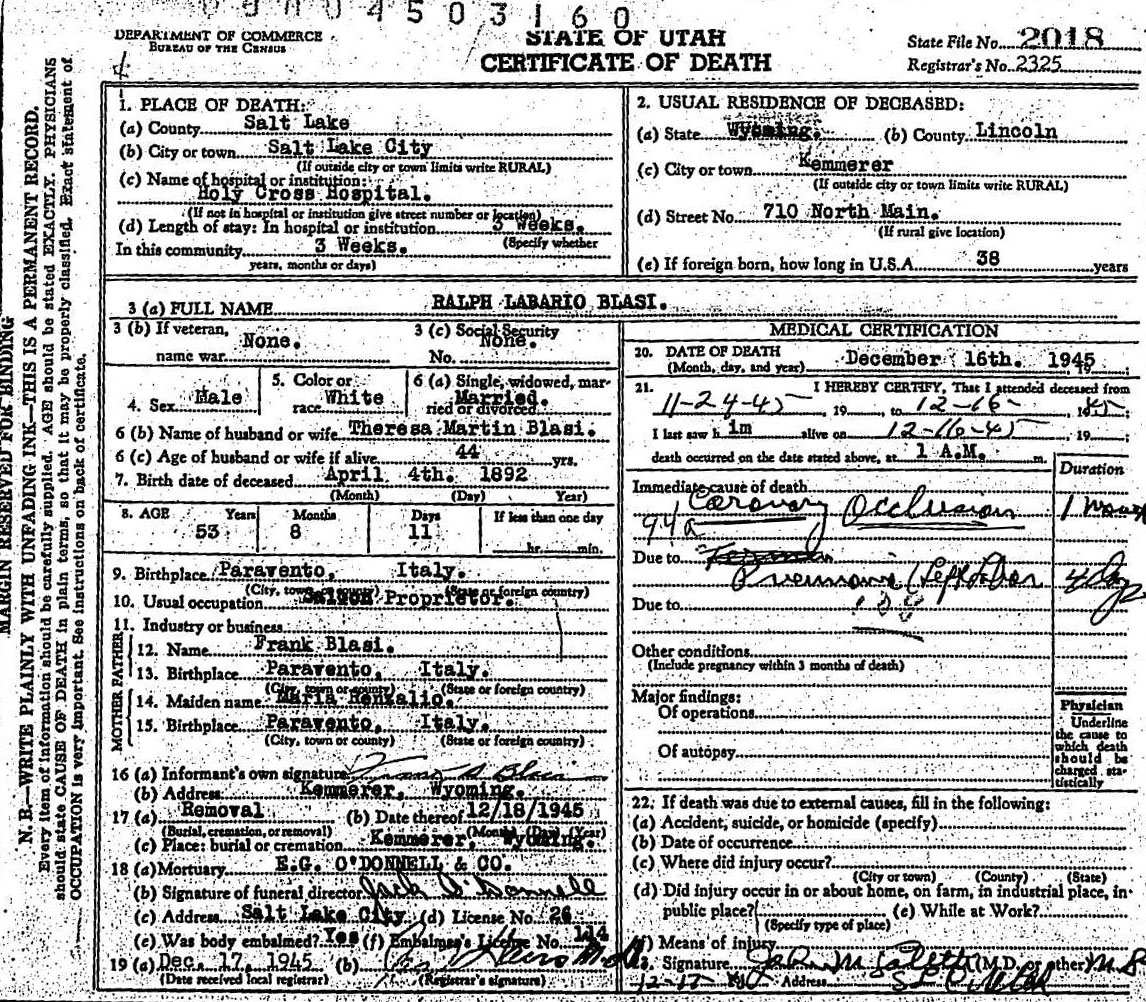 0 9 0 0 4 5 0 3 1 6 0
DEPARTMENT OF COMMERCE
BUREAU OF THE CENSUS
STATE OF UTAH
CERTIFICATE OF DEATH
State File No. 2018
Registrar's No. 2325
MARGIN RESERVED FOR BINDING
N. B.—WRITE PLAINLY WITH UNFADING INK—THIS IS A PERMANENT RECORD.
Every item of information should be carefully supplied. AGE should be stated EXACTLY. PHYSICIANS
should state CAUSE OF DEATH in plain terms, so that it may be properly classified. Exact statement of
OCCUPATION is very important. See instructions on back of certificate.
1. PLACE OF DEATH:
(a) County Salt Lake
(b) City or town Salt Lake City
(If outside city or town limits write RURAL)
(c) Name of hospital or institution:
Holy Cross Hospital.
(If not in hospital or institution give street number or location)
(d) Length of stay: In hospital or institution 3 Weeks.
(Specify whether
In this community 3 Weeks.
years, months or days)
2. USUAL RESIDENCE OF DECEASED:
(a) State Wyoming. (b) County Lincoln
(c) City or town Kemmerer
(If outside city or town limits write RURAL)
(d) Street No. 710 North Main.
(If rural give location)
(e) If foreign born, how long in U.S.A. 38 years
3 (a) FULL NAME RALPH LABARIO BLASI.
3 (b) If veteran, name war None.
3 (c) Social Security No. None.
4. Sex Male
5. Color or race White
6 (a) Single, widowed, married or divorced Married.
6 (b) Name of husband or wife Theresa Martin Blasi.
6 (c) Age of husband or wife if alive 44 yrs.
7. Birth date of deceased April 4th. 1892
(Month) (Day) Year)
8. AGE Years Months Days If less than one day
53 8 11 hr. min.
9. Birthplace Paravento, Italy.
(City, town or county) (State or foreign country)
10. Usual occupation Proprietor.
11. Industry or business
FATHER
12. Name Frank Blasi.
13. Birthplace Paravento, Italy.
(City, town or county) (State or foreign country)
MOTHER
14. Maiden name Maria
15. Birthplace Paravento, Italy.
(City, town or county) (State or foreign country)
16 (a) Informant's own signature
(b) Address Kemmerer, Wyoming.
17 (a) Removal (b) Date thereof 12/18/1945
(Burial, cremation, or removal) (Month) (Day) (Year)
(c) Place: burial or cremation Kemmerer, Wyoming.
18 (a) Mortuary E.G. O'DONNELL & CO.
(b) Signature of funeral director Jack O'Donnell
(c) Address Salt Lake City (d) License No. 26
(e) Was body embalmed? Yes (f) Embalmer's License No. 114
19 (a) Dec. 17, 1945 (b)
(Date received local registrar) (Registrar's signature)
MEDICAL CERTIFICATION
20. DATE OF DEATH December 16th. 1945
(Month, day, and year)
21. I HEREBY CERTIFY, That I attended deceased from
11-24-45, 19 , to 12-16- 1945
I last saw h im alive on 12-16-45, 19
death occurred on the date stated above, at 1 A.M. m.
Duration
Immediate cause of death
Coronary Occlusion
94a
Due to
Pneumonia
Due to
Other conditions
(Include pregnancy within 3 months of death)
Major findings:
Of operations
Of autopsy
Physician
Underline
the cause to
which death
should be
charged sta-
tistically
22. If death was due to external causes, fill in the following:
(a) Accident, suicide, or homicide (specify)
(b) Date of occurrence
(c) Where did injury occur?
(City or town) (County) (State)
(d) Did injury occur in or about home, on farm, in industrial place, in
public place? (e) While at Work?
(Specify type of place)
(f) Means of injury
Signature John M. (M.D. or other) M.D.
12-17- Address